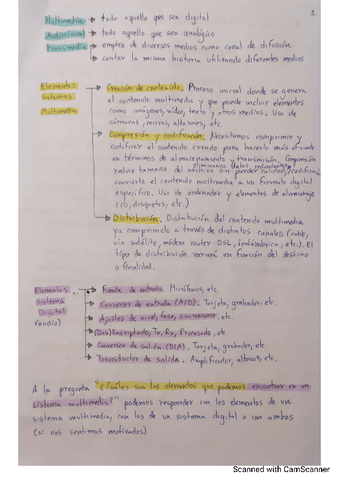 1
Multimedia → todo aquello que sea digital
Audiovisual → todo aquello que sea analógico
Transmedia → empleo de diversos medios como canal de difusión
→ contar la misma historia utilizando diferentes medios
Elementos → Creación de contenido. Proceso inicial donde se genera
Sistemas el contenido multimedia y que puede incluir elementos
Multimedia como imágenes, vídeo, texto y otros medios. Uso de
cámaras, micros, altavoces, etc.
→ Compresión y codificación. Necesitamos comprimir y
codificar el contenido creado para hacerlo más eficiente
en términos de almacenamiento y transmisión. Compresión
eliminamos datos redundantes
reduce tamaño del archivo sin perder calidad,
convierte el contenido multimedia a un formato digital
específico. Uso de ordenador y elementos de almacenaje
(cb, disquetes, etc.)
→ Distribución. Distribución del contenido multimedia
ya comprimido a través de distintos canales (cable,
vía satélite, módem router DSL, inalámbrica, etc.). El
tipo de distribución variará en función del destino
o finalidad.
Elementos → Fuente de entrada. Micrófonos, etc.
Sistema → Conversor de entrada (A/D). Tarjeta, grabador, etc.
Digital → Ajustes de nivel, fase, sincronismo, etc.
(audio) → (Des)Encriptado, Tx, Rx, Procesado, etc.
→ Conversor de salida (D/A). Tarjeta, grabador, etc.
→ Transductor de salida. Amplificador, altavoz, etc.
A la pregunta "¿Cuáles son los elementos que podemos encontrar en un
sistema multimedia?" podemos responder con los elementos de un
sistema multimedia, con los de un sistema digital o con ambos
(si nos sentimos motivados)
Scanned with CamScanner